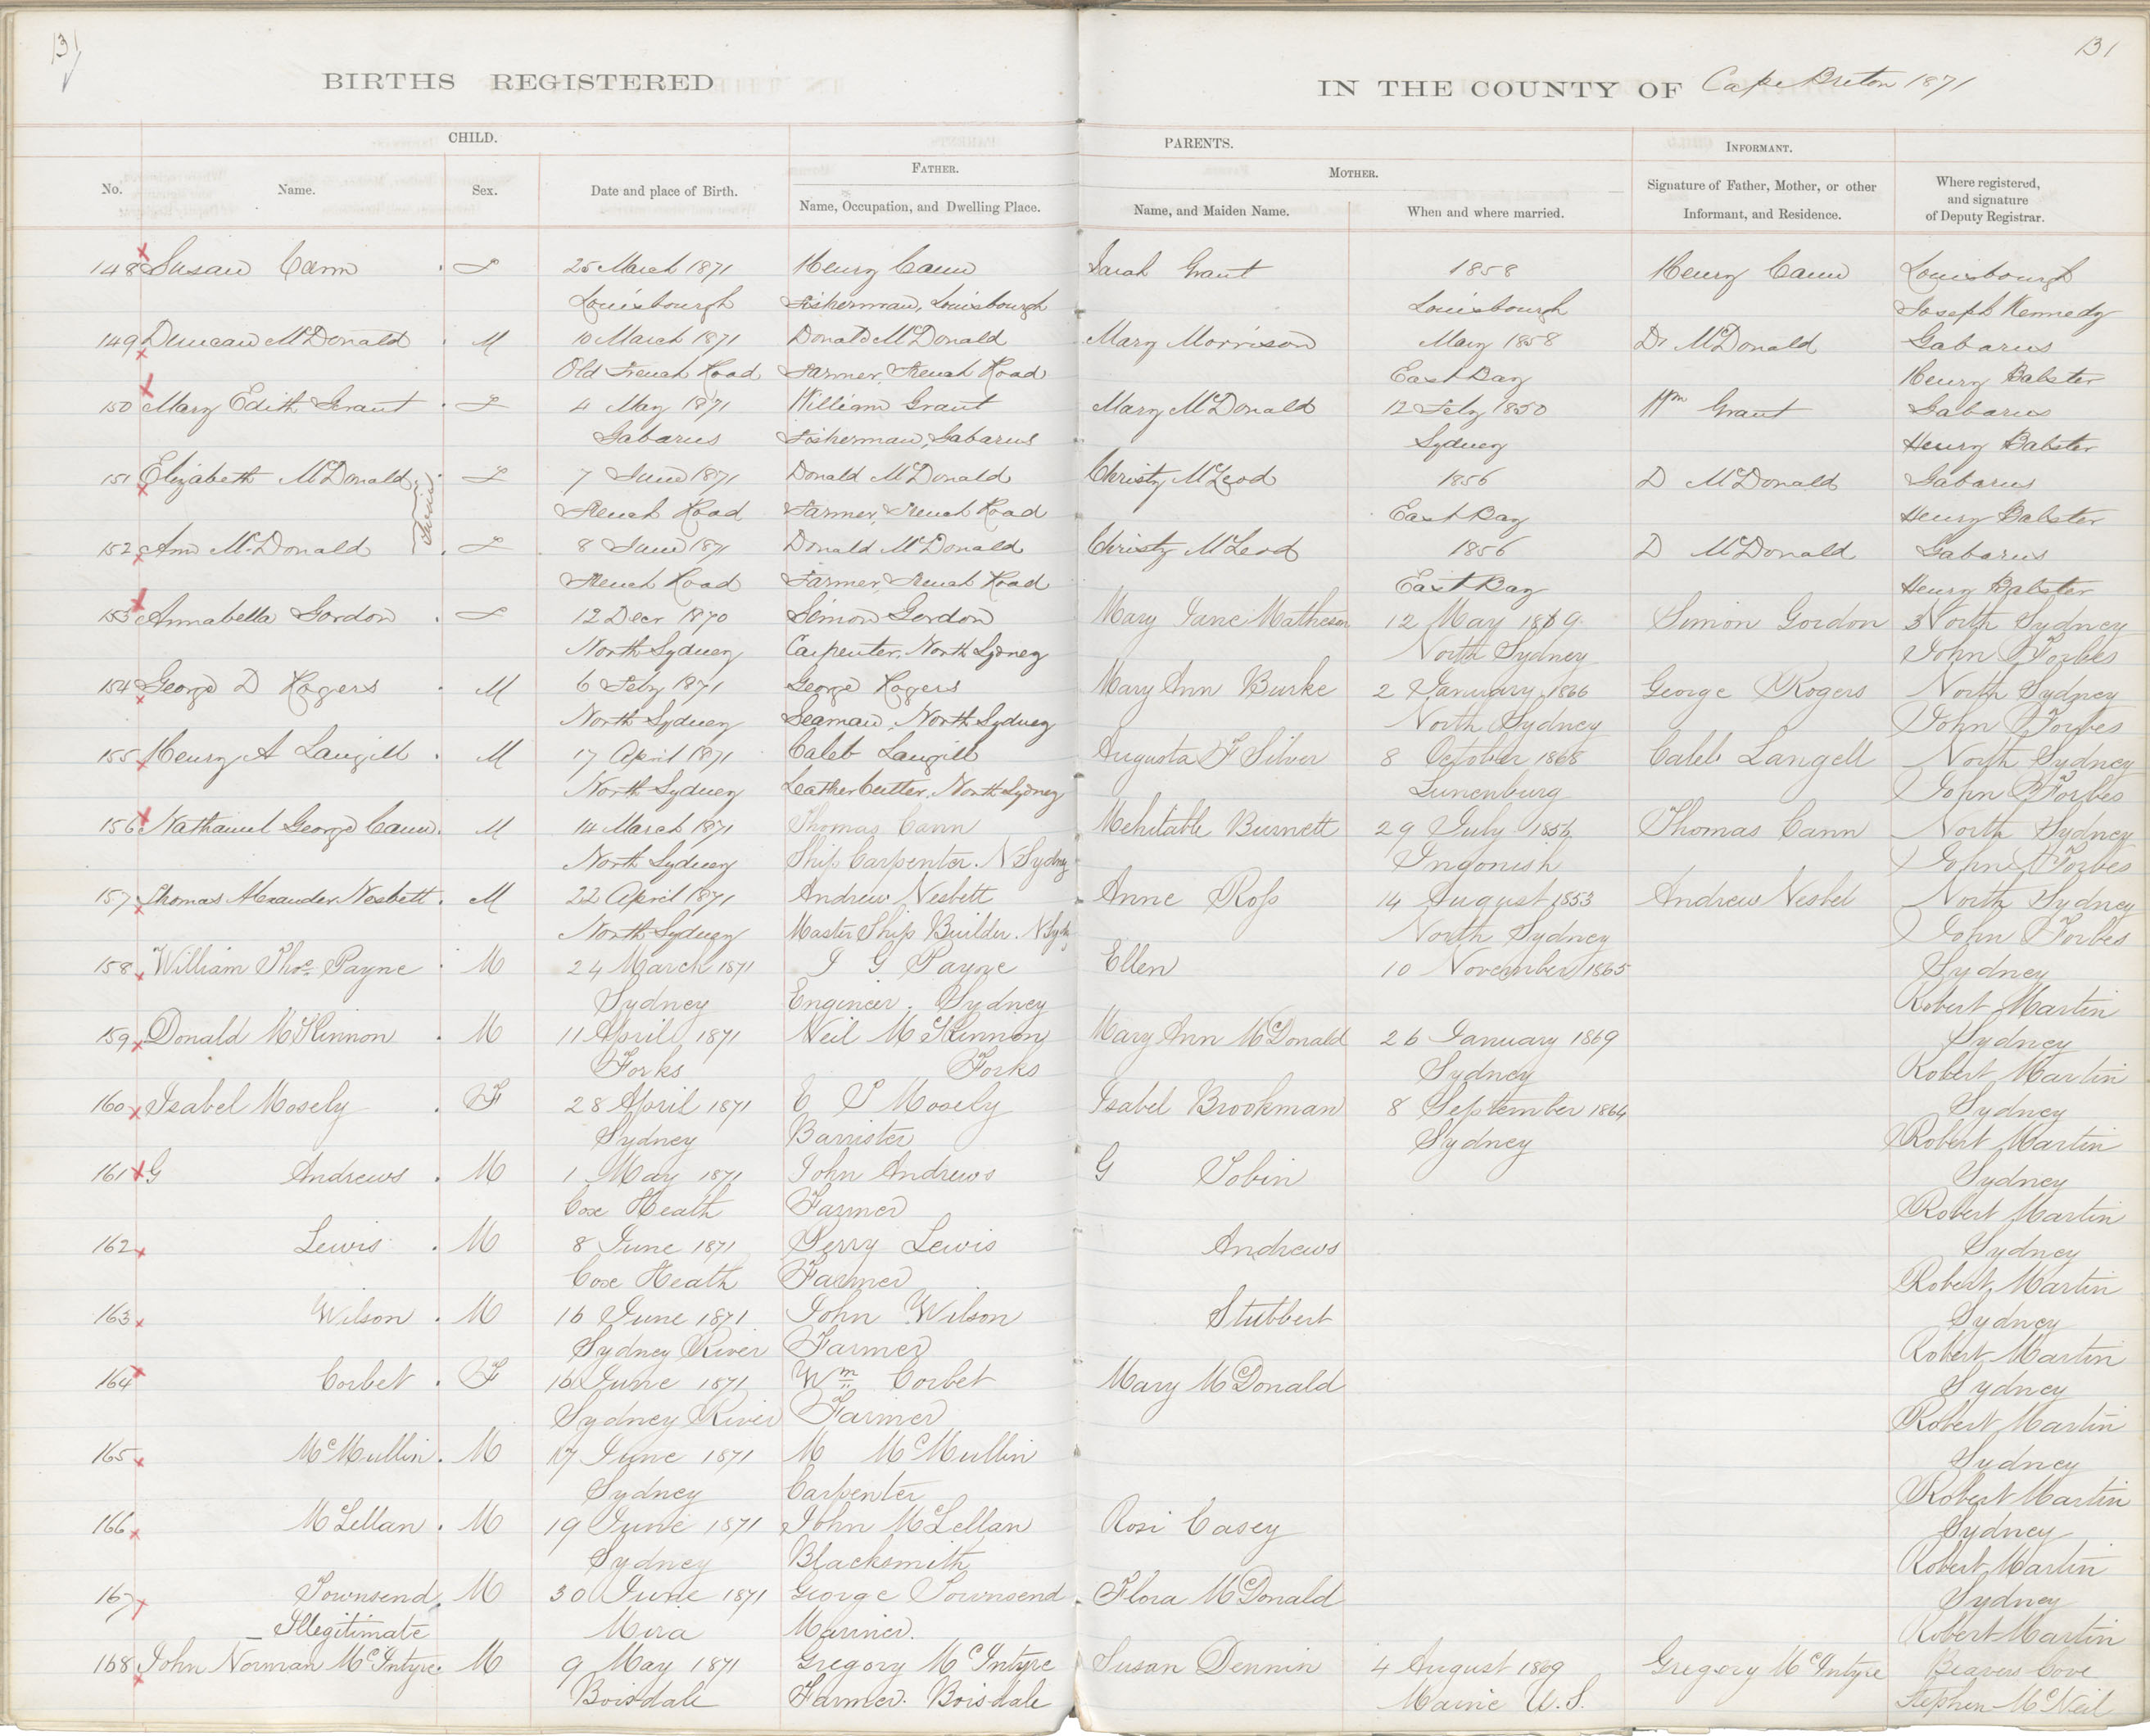 131
131
BIRTHS REGISTERED
IN THE COUNTY OF Cape Breton 1871
CHILD.
PARENTS.
INFORMANT.
FATHER.
MOTHER.
No. Name. Sex. Date and place of Birth. Name, Occupation, and Dwelling Place. Name, and Maiden Name. When and where married. Signature of Father, Mother, or other Informant, and Residence. Where registered, and signature of Deputy Registrar.
148 Susan Cann F 25 March 1871 Henry Cann Sarah Grant 1858 Henry Cann Louisbourgh
Louisbourgh Fisherman, Louisbourgh Louisbourgh Joseph Kennedy
149 Duncan McDonald M 10 March 1871 Donald McDonald Mary Morrison May 1858 D. McDonald Gabarus
Old French Road Farmer, French Road East Bay Henry Babster
150 Mary Edith Grant F 4 May 1871 William Grant Mary McDonald 12 Feby 1850 Wm Grant Gabarus
Gabarus Fisherman, Gabarus Sydney Henry Babster
151 Elizabeth McDonald F 7 June 1871 Donald McDonald Christy McLeod 1856 D McDonald Gabarus
French Road Farmer, French Road East Bay Henry Babster
152 Ann McDonald F 8 June 1871 Donald McDonald Christy McLeod 1856 D McDonald Gabarus
French Road Farmer, French Road East Bay Henry Babster
153 Annabella Gordon F 12 Decr 1870 Simon Gordon Mary Jane Matheson 12 May 1869 Simon Gordon North Sydney
North Sydney Carpenter, North Sydney North Sydney John Forbes
154 George D Rogers M 6 Feby 1871 George Rogers Mary Ann Burke 2 January 1866 George Rogers North Sydney
North Sydney Seaman, North Sydney North Sydney John Forbes
155 Henry A Langill M 17 April 1871 Caleb Langill Augusta F Silver 8 October 1868 Caleb Langell North Sydney
North Sydney Leather Cutter, North Sydney Lunenburg John Forbes
156 Nathanul George Cann M 14 March 1871 Thomas Cann Mehitable Burnett 29 July 1856 Thomas Cann North Sydney
North Sydney Ship Carpenter. N Sydney Ingonish John Forbes
157 Thomas Alexander Nesbett M 22 April 1871 Andrew Nesbett Anne Ross 14 August 1853 Andrew Nesbet North Sydney
North Sydney Master Ship Builder. N Syd North Sydney John Forbes
158 William Thos Payne M 24 March 1871 J G Payne Ellen 10 November 1865 Sydney
Sydney Engineer. Sydney Robert Martin
159 Donald McKinnon M 11 April 1871 Neil McKinnon Mary Ann McDonald 26 January 1869 Sydney
Forks Forks Sydney Robert Martin
160 Isabel Mosely F 28 April 1871 E P Mosely Isabel Brookman 8 September 1864 Sydney
Sydney Barrister Sydney Robert Martin
161 G Andrews M 1 May 1871 John Andrews G Tobin Sydney
Coxe Heath Farmer Robert Martin
162 Lewis M 8 June 1871 Perry Lewis Andrews Sydney
Coxe Heath Farmer Robert Martin
163 Wilson M 16 June 1871 John Wilson Stubbert Sydney
Sydney River Farmer Robert Martin
164 Corbet F 16 June 1871 Wm Corbet Mary McDonald Sydney
Sydney River Farmer Robert Martin
165 McMullin M 17 June 1871 M McMullin Sydney
Sydney Carpenter Robert Martin
166 McLellan M 19 June 1871 John McLellan Rosi Casey Sydney
Sydney Blacksmith Robert Martin
167 Townsend M 30 June 1871 George Townsend Flora McDonald Sydney
Illegitimate Mira Mariner. Robert Martin
168 John Norman McIntyre M 9 May 1871 Gregory McIntyre Susan Dennin 4 August 1869 Gregory McIntyre Beavers Cove
Boisdale Farmer. Boisdale Maine U.S. Stephen McNeil